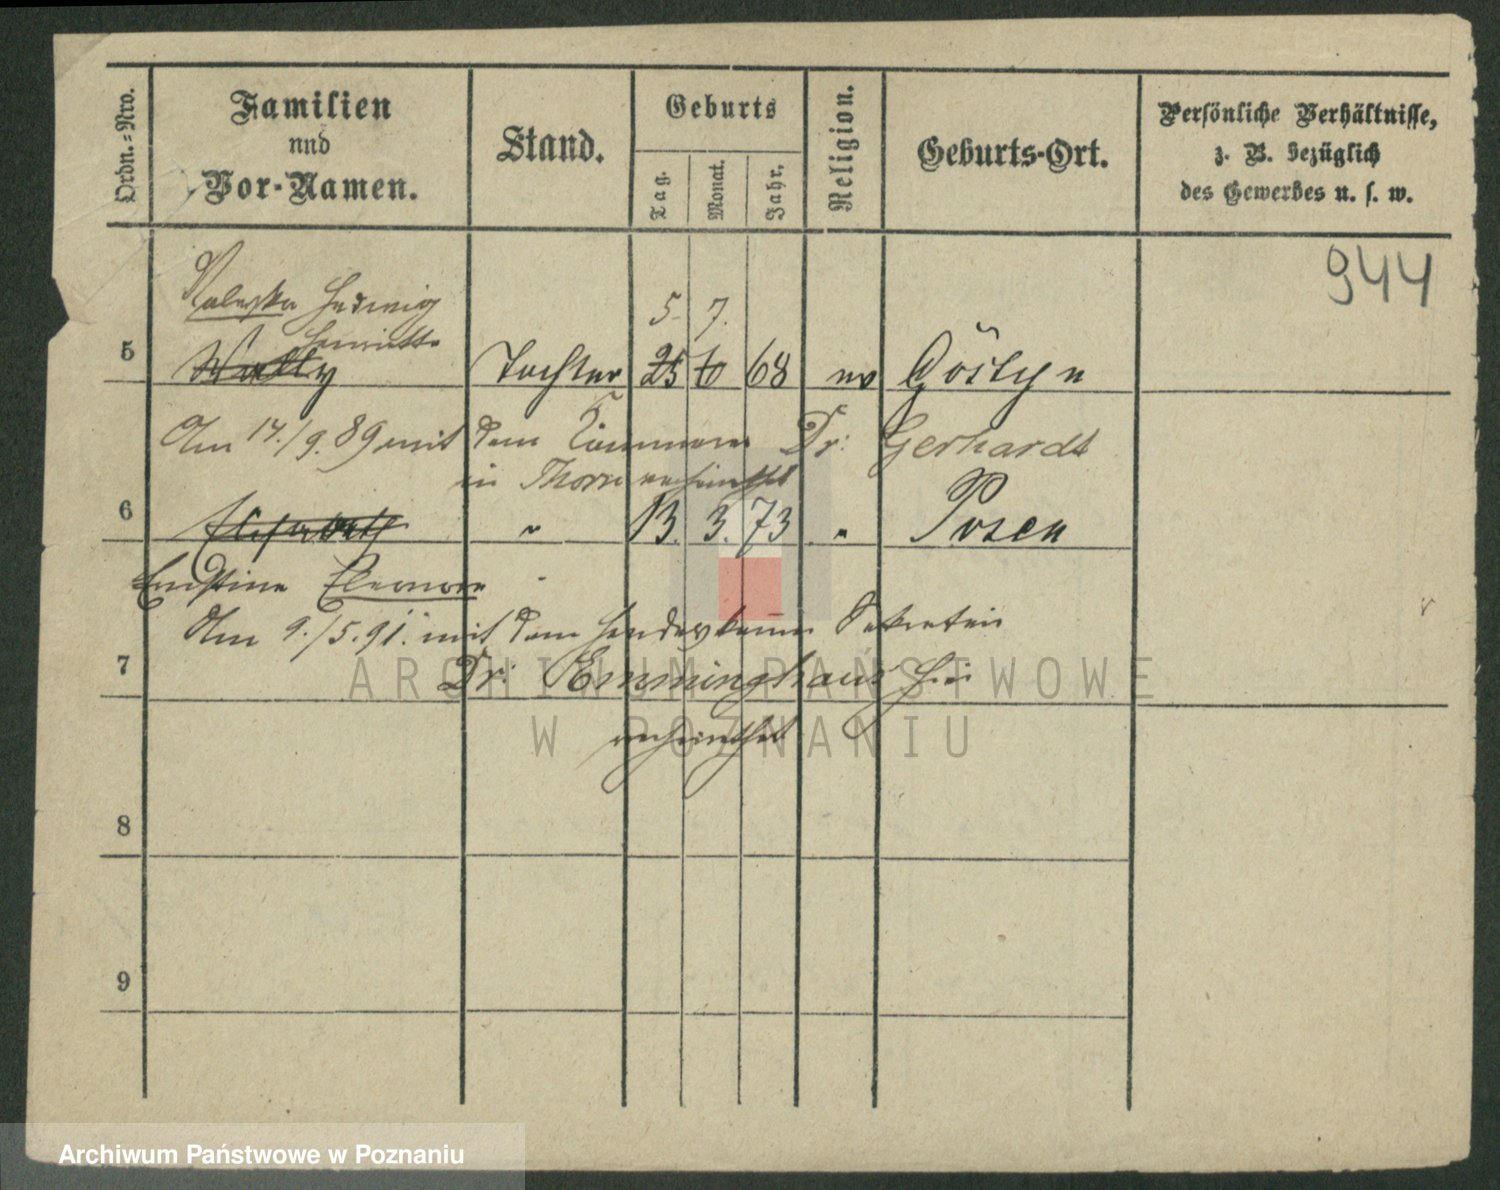 Ordn.-Nro.
Familien
und
Vor-Namen.
Stand.
Geburts
Tag.
Monat.
Jahr.
Religion.
Geburts-Ort.
Persönliche Verhältnisse,
z. B. bezüglich
des Gewerbes u. s. w.
944
Valeska Hedwig
Henriette
5. 7.
5 Wally Tochter 25 6 68 ev Göstyn
Am 14./9. 89 mit dem Dr. Gerhardt
in Thorn verheirathet
6 Elisabeth " 13. 3. 73 " Posen
Ernstine Eleonore
Am 9./5. 91. mit dem Sekretair
7 Dr. Emminghaus hier
verheirathet
8
9
ARCHIWUM PAŃSTWOWE
W POZNANIU
Archiwum Państwowe w Poznaniu